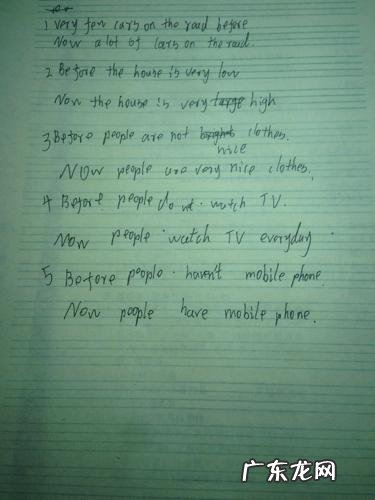 1 Very few cars on the road before
Now a lot of cars on the road.
2 Before the house is very low
Now the house is very large high
3 Before people are not bright clothes.
nice
Now people are very nice clothes.
4 Before people do not watch TV.
Now people watch TV everyday.
5 Before people haven't mobile phone
Now people have mobile phone.
广东龙网